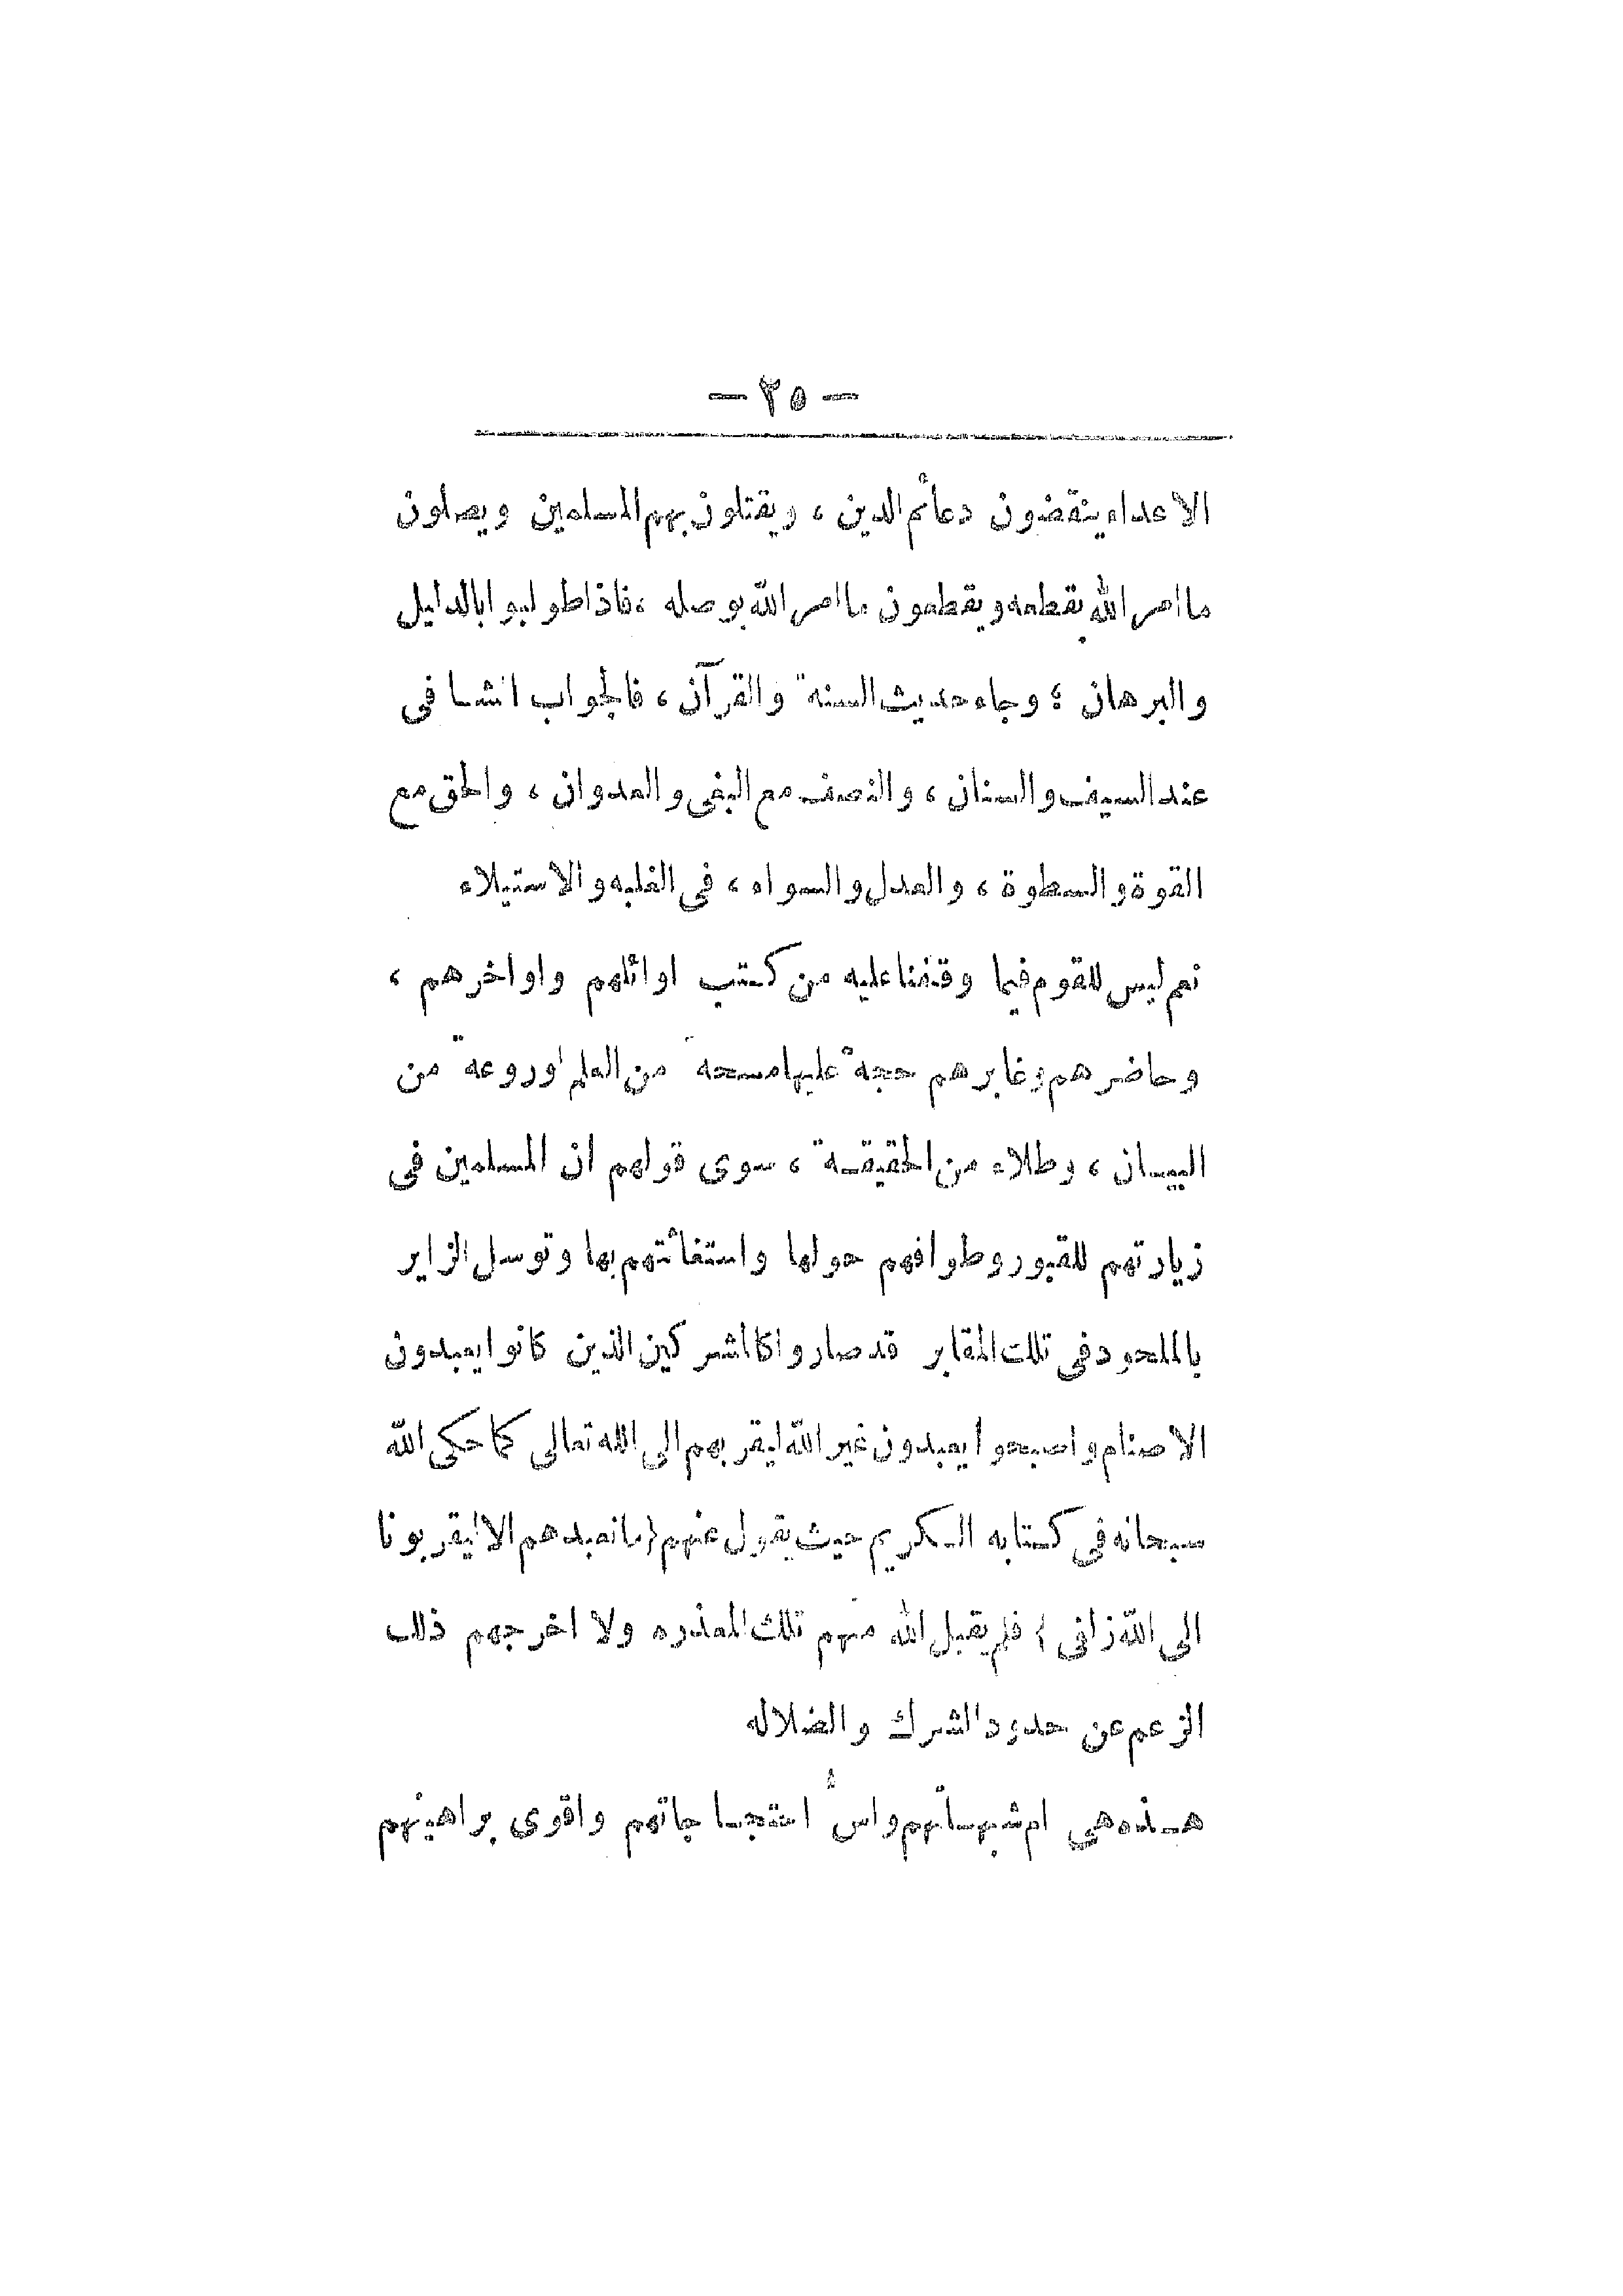 — ٢٥ —
الاعداء ينقضون دعائم الدين ، ويقتلون بهم المسلمين ويصلون
ما امر الله بقطعه ويقطعون ما امر الله بوصله ، فاذا طولبوا بالدليل
والبرهان ؛ وجاء حديث السنة والقرآن ، فالجواب الشافى
عند السيف والسنان ، والنصف مع البغى والعدوان ، والحق مع
القوة والسطوة ، والعدل والسواء ، فى الغلبه والاستيلاء
نعم ليس للقوم فيما وقفنا عليه من كتب اوائلهم واواخرهم ،
وحاضرهم وغابرهم حجة عليها مسحة من العلم اوروعة من
البيان ، وطلاء من الحقيقة ، سوى قولهم ان المسلمين فى
زيارتهم للقبور وطوافهم حولها واستغاثتهم بها وتوسل الزاير
بالملحود فى تلك المقابر قد صاروا كالمشركين الذين كانوا يعبدون
الاصنام واصبحوا يعبدون غير الله ليقربهم الى الله تعالى كما حكى الله
سبحانه فى كتابه الكريم حيث يقول عنهم (ما نعبدهم الا ليقربونا
الى الله زلفى ) فلم يقبل الله منهم تلك المعذره ولا اخرجهم ذلك
الزعم عن حدود الشرك والضلاله
هذه هى ام شبهاتهم واسُّ احتجاجاتهم واقوى براهينهم